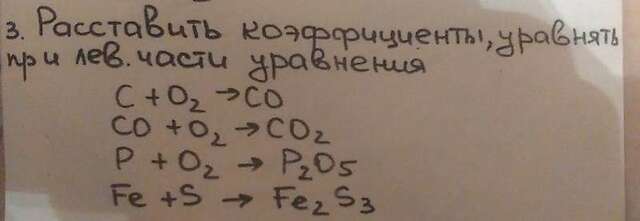 3. Расставить коэффициенты, уравнять
при лев. части уравнения
C + O₂ → CO
CO + O₂ → CO₂
P + O₂ → P₂O₅
Fe + S → Fe₂S₃